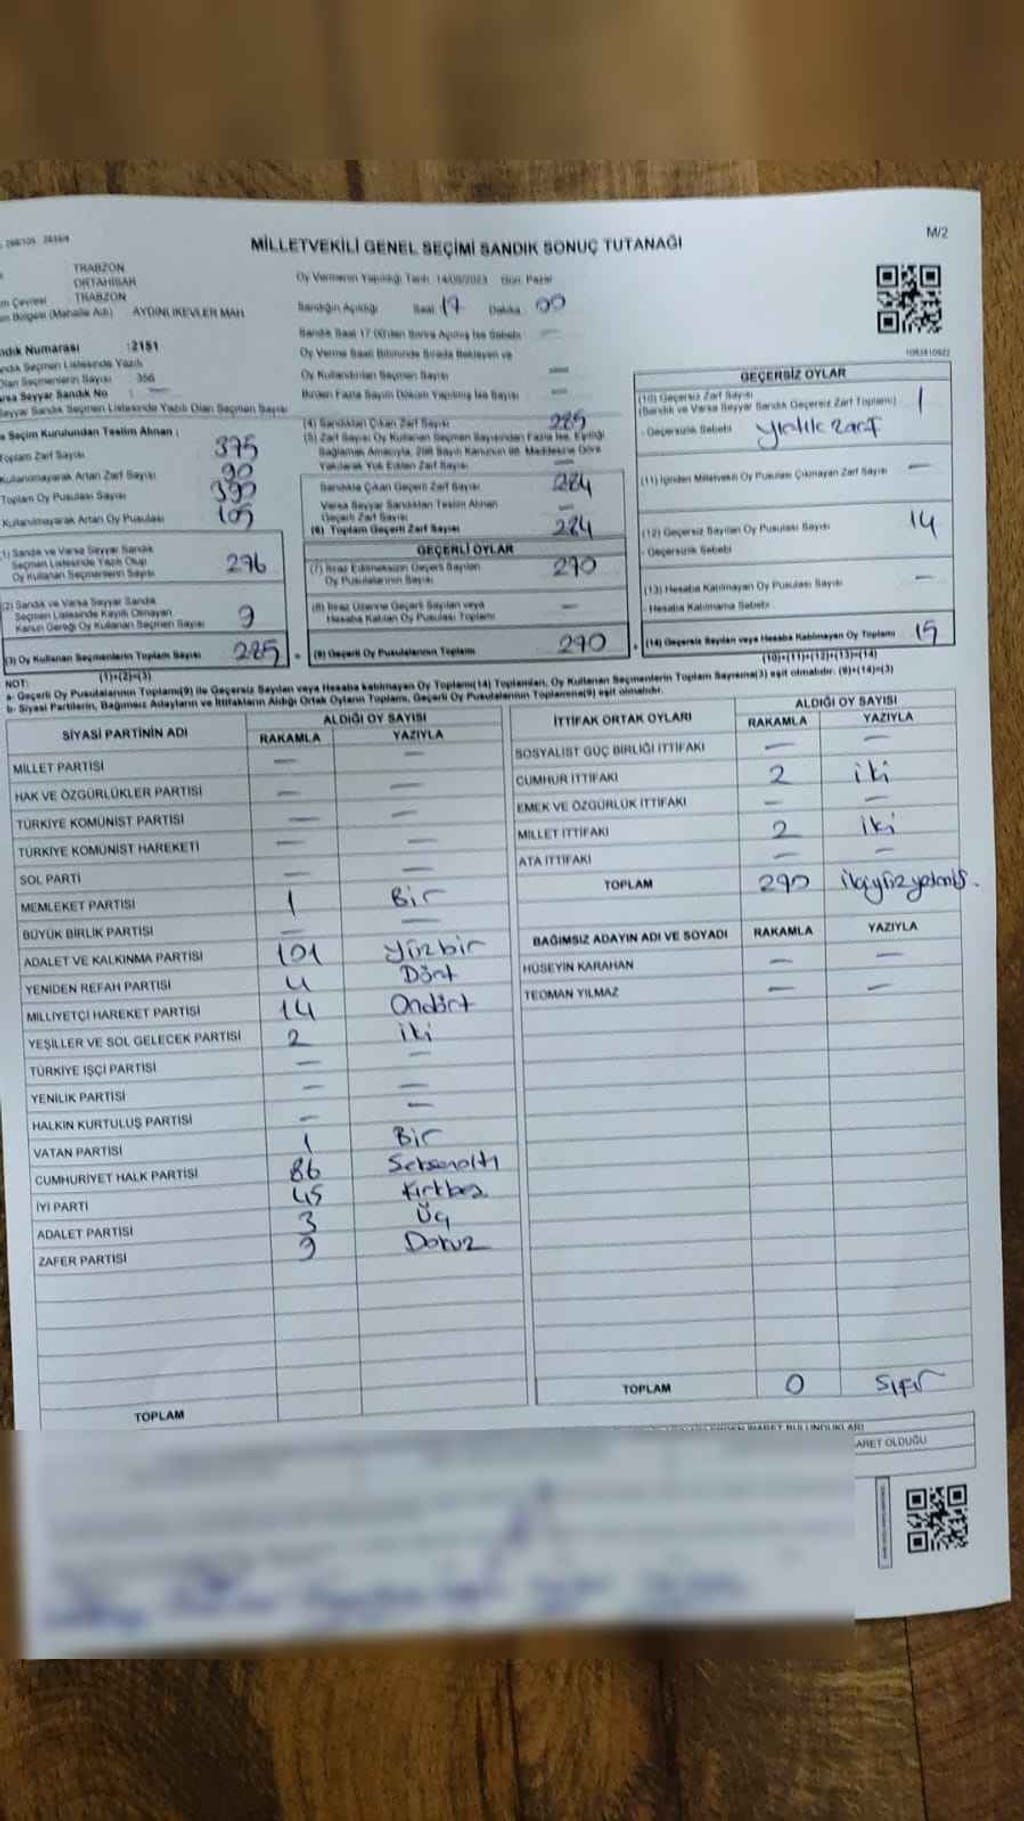 MİLLETVEKİLİ GENEL SEÇİMİ SANDIK SONUÇ TUTANAĞI
M/2
TRABZON
ORTAHİSAR
TRABZON
AYDINLIKEVLER MAH
Oy Vermenin Yapıldığı Tarih 14/05/2023 Gün Pazar
Sandığın Açıldığı Saat 17 Dakika 00
Sandık Saat 17:00'den Sonra Açılmış İse Sebebi —
Oy Verme Saati Bitiminde Sırada Bekleyen ve
Oy Kullandırılan Seçmen Sayısı —
Birden Fazla Sayım Döküm Yapılmış İse Sayısı —
Numarası :2151
Sandık Seçmen Listesinde Yazılı
Olan Seçmenlerin Sayısı : 356
Varsa Seyyar Sandık No : —
Seyyar Sandık Seçmen Listesinde Yazılı Olan Seçmen Sayısı
Seçim Kurulundan Teslim Alınan :
Toplam Zarf Sayısı 375
Kullanılmayarak Artan Zarf Sayısı 90
Toplam Oy Pusulası Sayısı 390
Kullanılmayarak Artan Oy Pusulası 105
(1) Sandık ve Varsa Seyyar Sandık
Seçmen Listesinde Yazılı Olup
Oy Kullanan Seçmenlerin Sayısı 276
(2) Sandık ve Varsa Seyyar Sandık
Seçmen Listesinde Kayıtlı Olmayan
Kanun Gereği Oy Kullanan Seçmen Sayısı 9
(3) Oy Kullanan Seçmenlerin Toplam Sayısı 285
(1)+(2)=(3)
(4) Sandıktan Çıkan Zarf Sayısı 285
(5) Zarf Sayısı Oy Kullanan Seçmen Sayısından Fazla İse, Eşitliği
Sağlamak Amacıyla, 298 Sayılı Kanunun 98. Maddesine Göre
Yakılarak Yok Edilen Zarf Sayısı —
Sandıkta Çıkan Geçerli Zarf Sayısı 284
Varsa Seyyar Sandıktan Teslim Alınan
Geçerli Zarf Sayısı —
(6) Toplam Geçerli Zarf Sayısı 284
GEÇERLİ OYLAR
(7) İtiraz Edilmeksizin Geçerli Sayılan
Oy Pusulalarının Sayısı 270
(8) İtiraz Üzerine Geçerli Sayılan veya
Hesaba Katılan Oy Pusulası Toplamı —
(9) Geçerli Oy Pusulalarının Toplamı 270
GEÇERSİZ OYLAR
(10) Geçersiz Zarf Sayısı
(Sandık ve Varsa Seyyar Sandık Geçersiz Zarf Toplamı) 1
- Geçersizlik Sebebi yırtık zarf
(11) İçinden Milletvekili Oy Pusulası Çıkmayan Zarf Sayısı —
(12) Geçersiz Sayılan Oy Pusulası Sayısı 14
- Geçersizlik Sebebi
(13) Hesaba Katılmayan Oy Pusulası Sayısı —
- Hesaba Katılmama Sebebi
(14) Geçersiz Sayılan veya Hesaba Katılmayan Oy Toplamı 15
(10)+(11)+(12)+(13)=(14)
NOT:
a- Geçerli Oy Pusulalarının Toplamı(9) ile Geçersiz Sayılan veya Hesaba katılmayan Oy Toplamı(14) Toplamları, Oy Kullanan Seçmenlerin Toplam Sayısına(3) eşit olmalıdır. (9)+(14)=(3)
b- Siyasi Partilerin, Bağımsız Adayların ve İttifakların Aldığı Ortak Oyların Toplamı, Geçerli Oy Pusulalarının Toplamına(9) eşit olmalıdır.
SİYASİ PARTİNİN ADI
ALDIĞI OY SAYISI
RAKAMLA YAZIYLA
MİLLET PARTİSİ — —
HAK VE ÖZGÜRLÜKLER PARTİSİ — —
TÜRKİYE KOMÜNİST PARTİSİ — —
TÜRKİYE KOMÜNİST HAREKETİ — —
SOL PARTİ — —
MEMLEKET PARTİSİ 1 Bir
BÜYÜK BİRLİK PARTİSİ — —
ADALET VE KALKINMA PARTİSİ 101 Yüzbir
YENİDEN REFAH PARTİSİ 4 Dört
MİLLİYETÇİ HAREKET PARTİSİ 14 Ondört
YEŞİLLER VE SOL GELECEK PARTİSİ 2 iki
TÜRKİYE İŞÇİ PARTİSİ — —
YENİLİK PARTİSİ — —
HALKIN KURTULUŞ PARTİSİ — —
VATAN PARTİSİ 1 Bir
CUMHURİYET HALK PARTİSİ 86 Seksenaltı
İYİ PARTİ 45 Kırkbeş
ADALET PARTİSİ 3 Üç
ZAFER PARTİSİ 9 Dokuz
TOPLAM
İTTİFAK ORTAK OYLARI
ALDIĞI OY SAYISI
RAKAMLA YAZIYLA
SOSYALİST GÜÇ BİRLİĞİ İTTİFAKI — —
CUMHUR İTTİFAKI 2 iki
EMEK VE ÖZGÜRLÜK İTTİFAKI — —
MİLLET İTTİFAKI 2 iki
ATA İTTİFAKI — —
TOPLAM 270 ikiyüzyetmiş.
BAĞIMSIZ ADAYIN ADI VE SOYADI RAKAMLA YAZIYLA
HÜSEYİN KARAHAN — —
TEOMAN YILMAZ — —
TOPLAM 0 Sıfır
ARET OLDUĞU